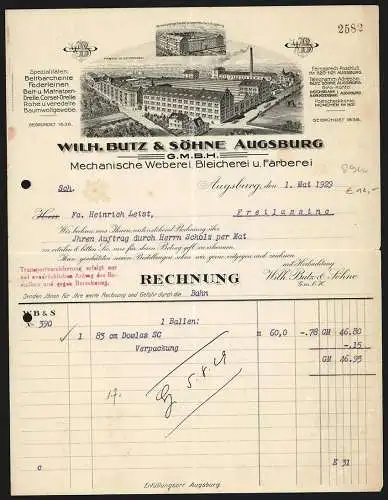 2582
Spezialitäten:
Bettbarchente
Federleinen
Bett- u. Matratzen-
Drelle, Corset-Drelle
Rohe u. veredelte
Baumwollgewebe.
GEGRÜNDET 1838.
Fernsprech-Anschluß
AUGSBURG.
Telegramm-Adresse:
BUTZ SÖHNE AUGSBURG
Giro-Konto:
Postscheckkonto:
MÜNCHEN
GEGRÜNDET 1838.
WILH. BUTZ & SÖHNE AUGSBURG
G.M.B.H.
Mechanische Weberei, Bleicherei u. Färberei
€ 12,-
Sch. Augsburg, den 1. Mai 1929
Herrn Fa. Heinrich Leist, Freilassing
Wir beehren uns Ihnen untenstehend Rechnung über
Ihren Auftrag durch Herrn Scholz per Mai
zu erteilen & bitten Sie, uns für den Betrag gefl. zu erkennen.
Ihren geschätzten neuen Bestellungen sehen wir gerne entgegen und zeichnen
mit Hochachtung
Wilh. Butz & Söhne
G.m.b.H.
Transportversicherung erfolgt nur
auf ausdrücklichen Antrag des Be-
stellers und gegen Berechnung.
RECHNUNG
Senden Ihnen für Ihre werte Rechnung und Gefahr durch die Bahn
WB & S
No 390 1 Ballen:
1 83 cm Dowlas SC m 60,0 -.78 GM 46.80
Verpackung -.15
GM 46.95
5.8.29
o E 31
Erfüllungsort Augsburg.